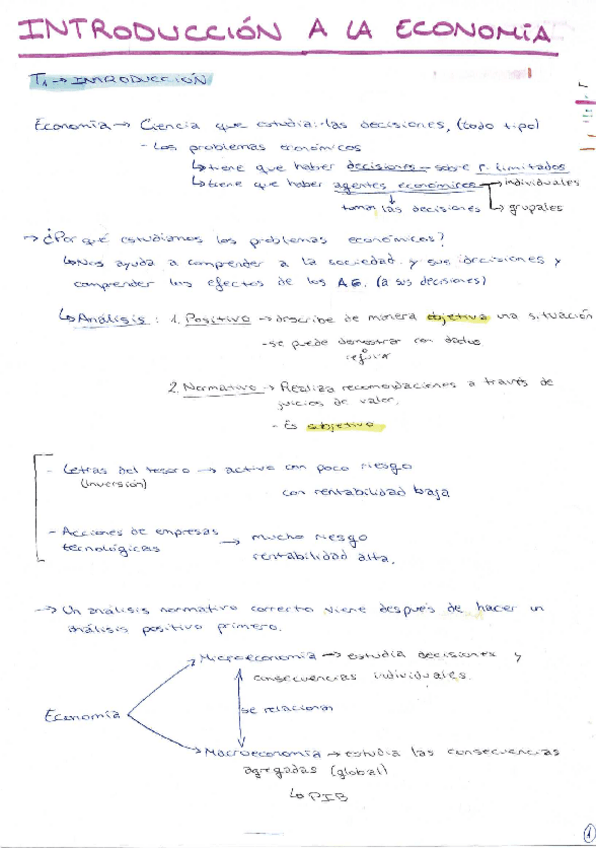 INTRODUCCIÓN A LA ECONOMÍA
T1 → INTRODUCCIÓN
Economía → Ciencia que estudia: - las decisiones, (todo tipo)
- Los problemas económicos
↳ tiene que haber decisiones - sobre r. limitados
↳ tiene que haber agentes económicos → individuales
↓ tomar las decisiones ↳ grupales
→ ¿Por qué estudiamos los problemas económicos?
↳ Nos ayuda a comprender a la sociedad y sus decisiones y
comprender los efectos de los AE. (a sus decisiones)
↳ Análisis: 1. Positivo → describe de manera objetiva una situación
- se puede demostrar con datos
o
refutar
2. Normativo → Realiza recomendaciones a través de
juicios de valor.
- Es subjetivo
- Letras del tesoro → activo con poco riesgo
(Inversión)
con rentabilidad baja
- Acciones de empresas
tecnológicas → mucho riesgo
rentabilidad alta.
→ Un análisis normativo correcto viene después de hacer un
análisis positivo primero.
Microeconomía → estudia decisiones y
consecuencias individuales.
Economía
se relacionan
Macroeconomía → estudia las consecuencias
agregadas (global)
↳ PIB
1